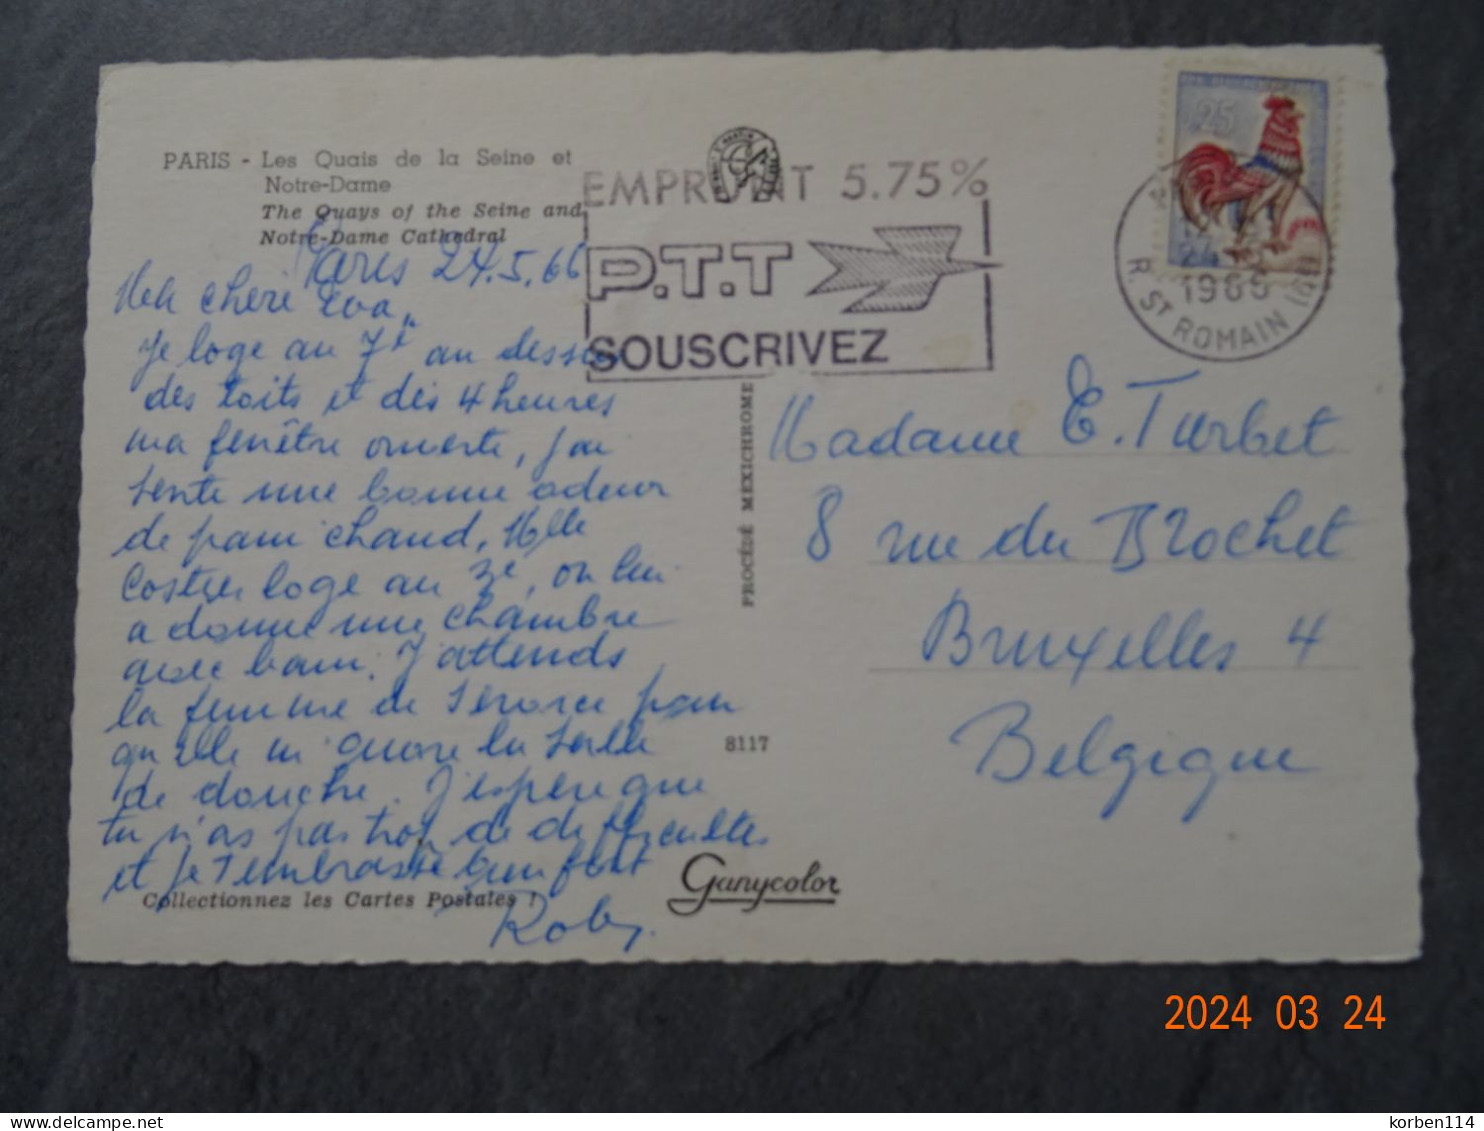 PARIS - Les Quais de la Seine et
Notre-Dame
The Quays of the Seine and
Notre-Dame Cathedral
EMPRUNT 5.75%
P.T.T
SOUSCRIVEZ
25
1966
R. ST ROMAIN (6E)
Paris 24.5.66
Ma chère Eva,
Je loge au 7e au dessus
des toits et dès 4 heures
ma fenêtre ouverte, j'ai
sente une bonne odeur
de pain chaud, Melle
loge au 3e, on lui
a donné une chambre
avec bain. J'attends
la femme de service pour
qu'elle m' la salle
de douche. J'espère que
tu n'as pas trop de difficultés
et je t'embrasse bien fort
Roby.
Collectionnez les Cartes Postales !
PROCÉDÉ MEXICHROME
8117
Ganycolor
Madame E. Turbet
8 rue du Brochet
Bruxelles 4
Belgique
2024 03 24
korben114